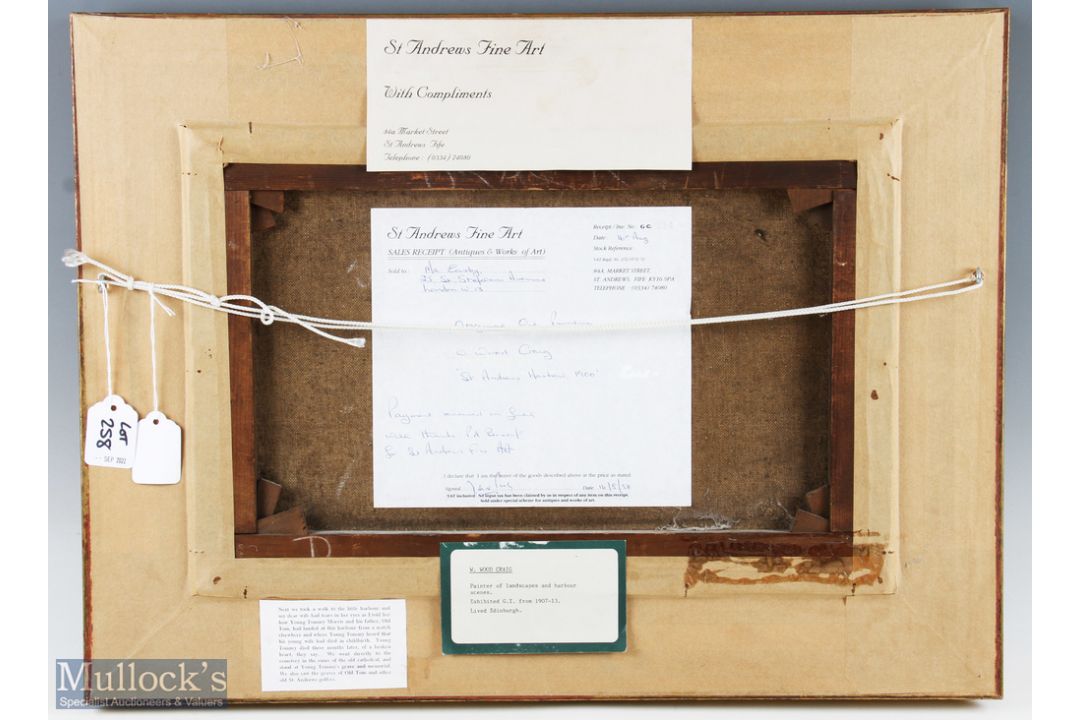 St Andrews Fine Art
With Compliments
84a Market Street
St Andrews Fife
Telephone: (0334) 74080
St Andrews Fine Art
SALES RECEIPT (Antiques & Works of Art)
Receipt / Inv. No. GC
Date
Stock Reference:
84A, MARKET STREET,
ST. ANDREWS, FIFE KY16 9PA
TELEPHONE (0334) 74080
Sold to:
London W.13
Wood Craig
'St Andrews Harbour 1900'
Payment received in full
with thanks
for St Andrews Fine Art
I declare that I am the buyer of the goods described above at the price as stated.
Signed
Date
VAT included. No input tax has been claimed by us in respect of any item on this receipt,
sold under special scheme for antiques and works of art.
LOT
258
SEP 2022
W. WOOD CRAIG
Painter of landscapes and harbour
scenes.
Exhibited G.I. from 1907-13.
Lived Edinburgh.
Next we took a walk to the little harbour and
my dear wife had tears in her eyes as I told her
how Young Tommy Morris and his father, Old
Tom, had landed at this harbour from a match
elsewhere and where Young Tommy heard that
his young wife had died in childbirth. Young
Tommy died three months later, of a broken
heart, they say. We went directly to the
cemetery in the ruins of the old cathedral, and
stood at Young Tommy's grave and memorial.
We also saw the graves of Old Tom and other
old St. Andrews golfers.
Mullock's
Specialist Auctioneers & Valuers